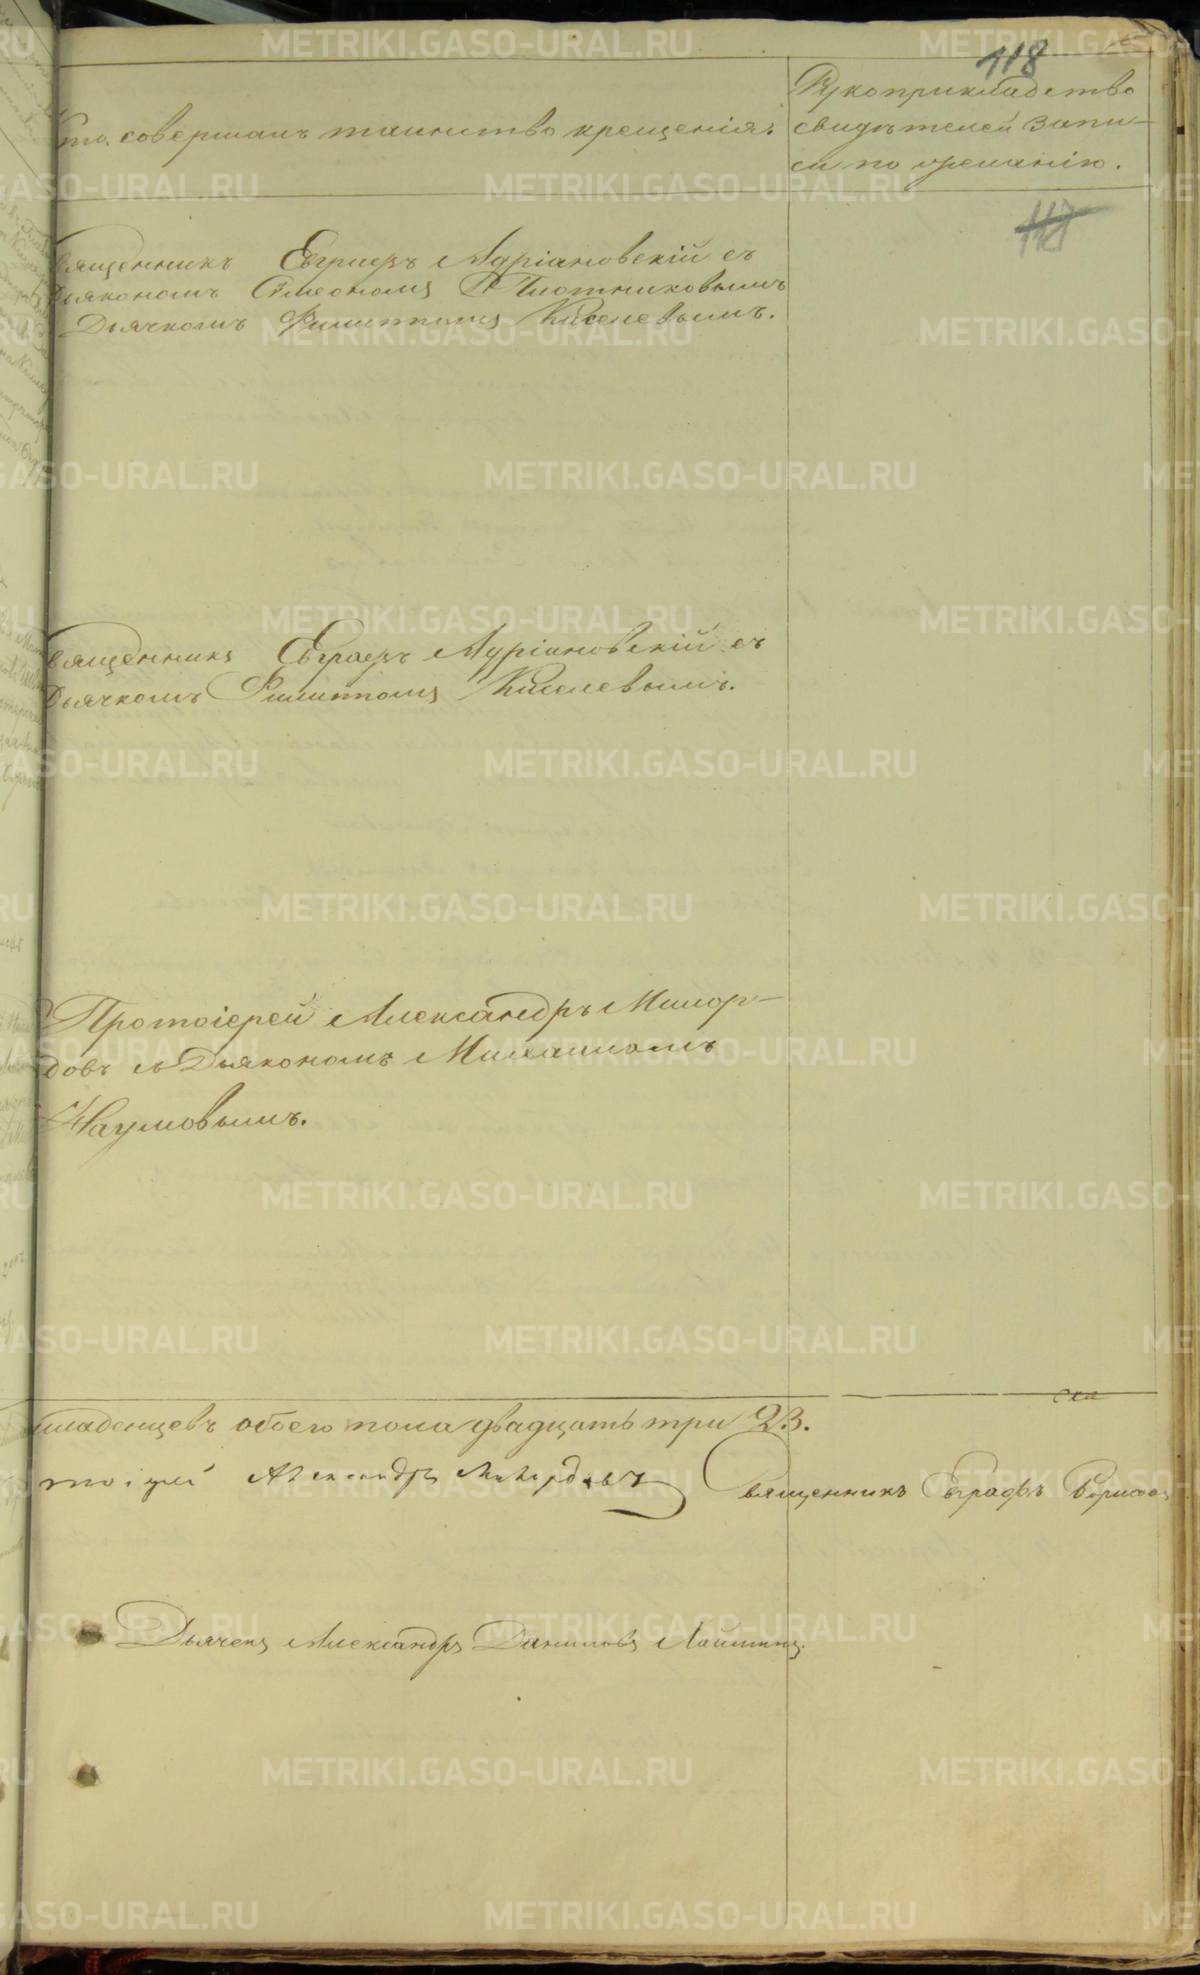 118
Кто совершалъ таинство крещенія.
Рукоприкладство
свидѣтелей запи-
си по желанію.
117
Священникъ Евграфъ Адріановскій съ
Дьякономъ Симеономъ Плотниковымъ
Дьячкомъ Филиппомъ Киселевымъ.
Священникъ Евграфъ Адріановскій съ
Дьячкомъ Филиппомъ Киселевымъ.
Протоіерей Александръ Милор-
довъ съ Дьякономъ Михаиломъ
Наумовымъ.
младенцевъ обоего пола двадцать три 23.
тоіерей Александръ Милордовъ Священникъ Евграфъ Борисовъ
Дьячекъ Александръ Даниловъ
METRIKI.GASO-URAL.RU